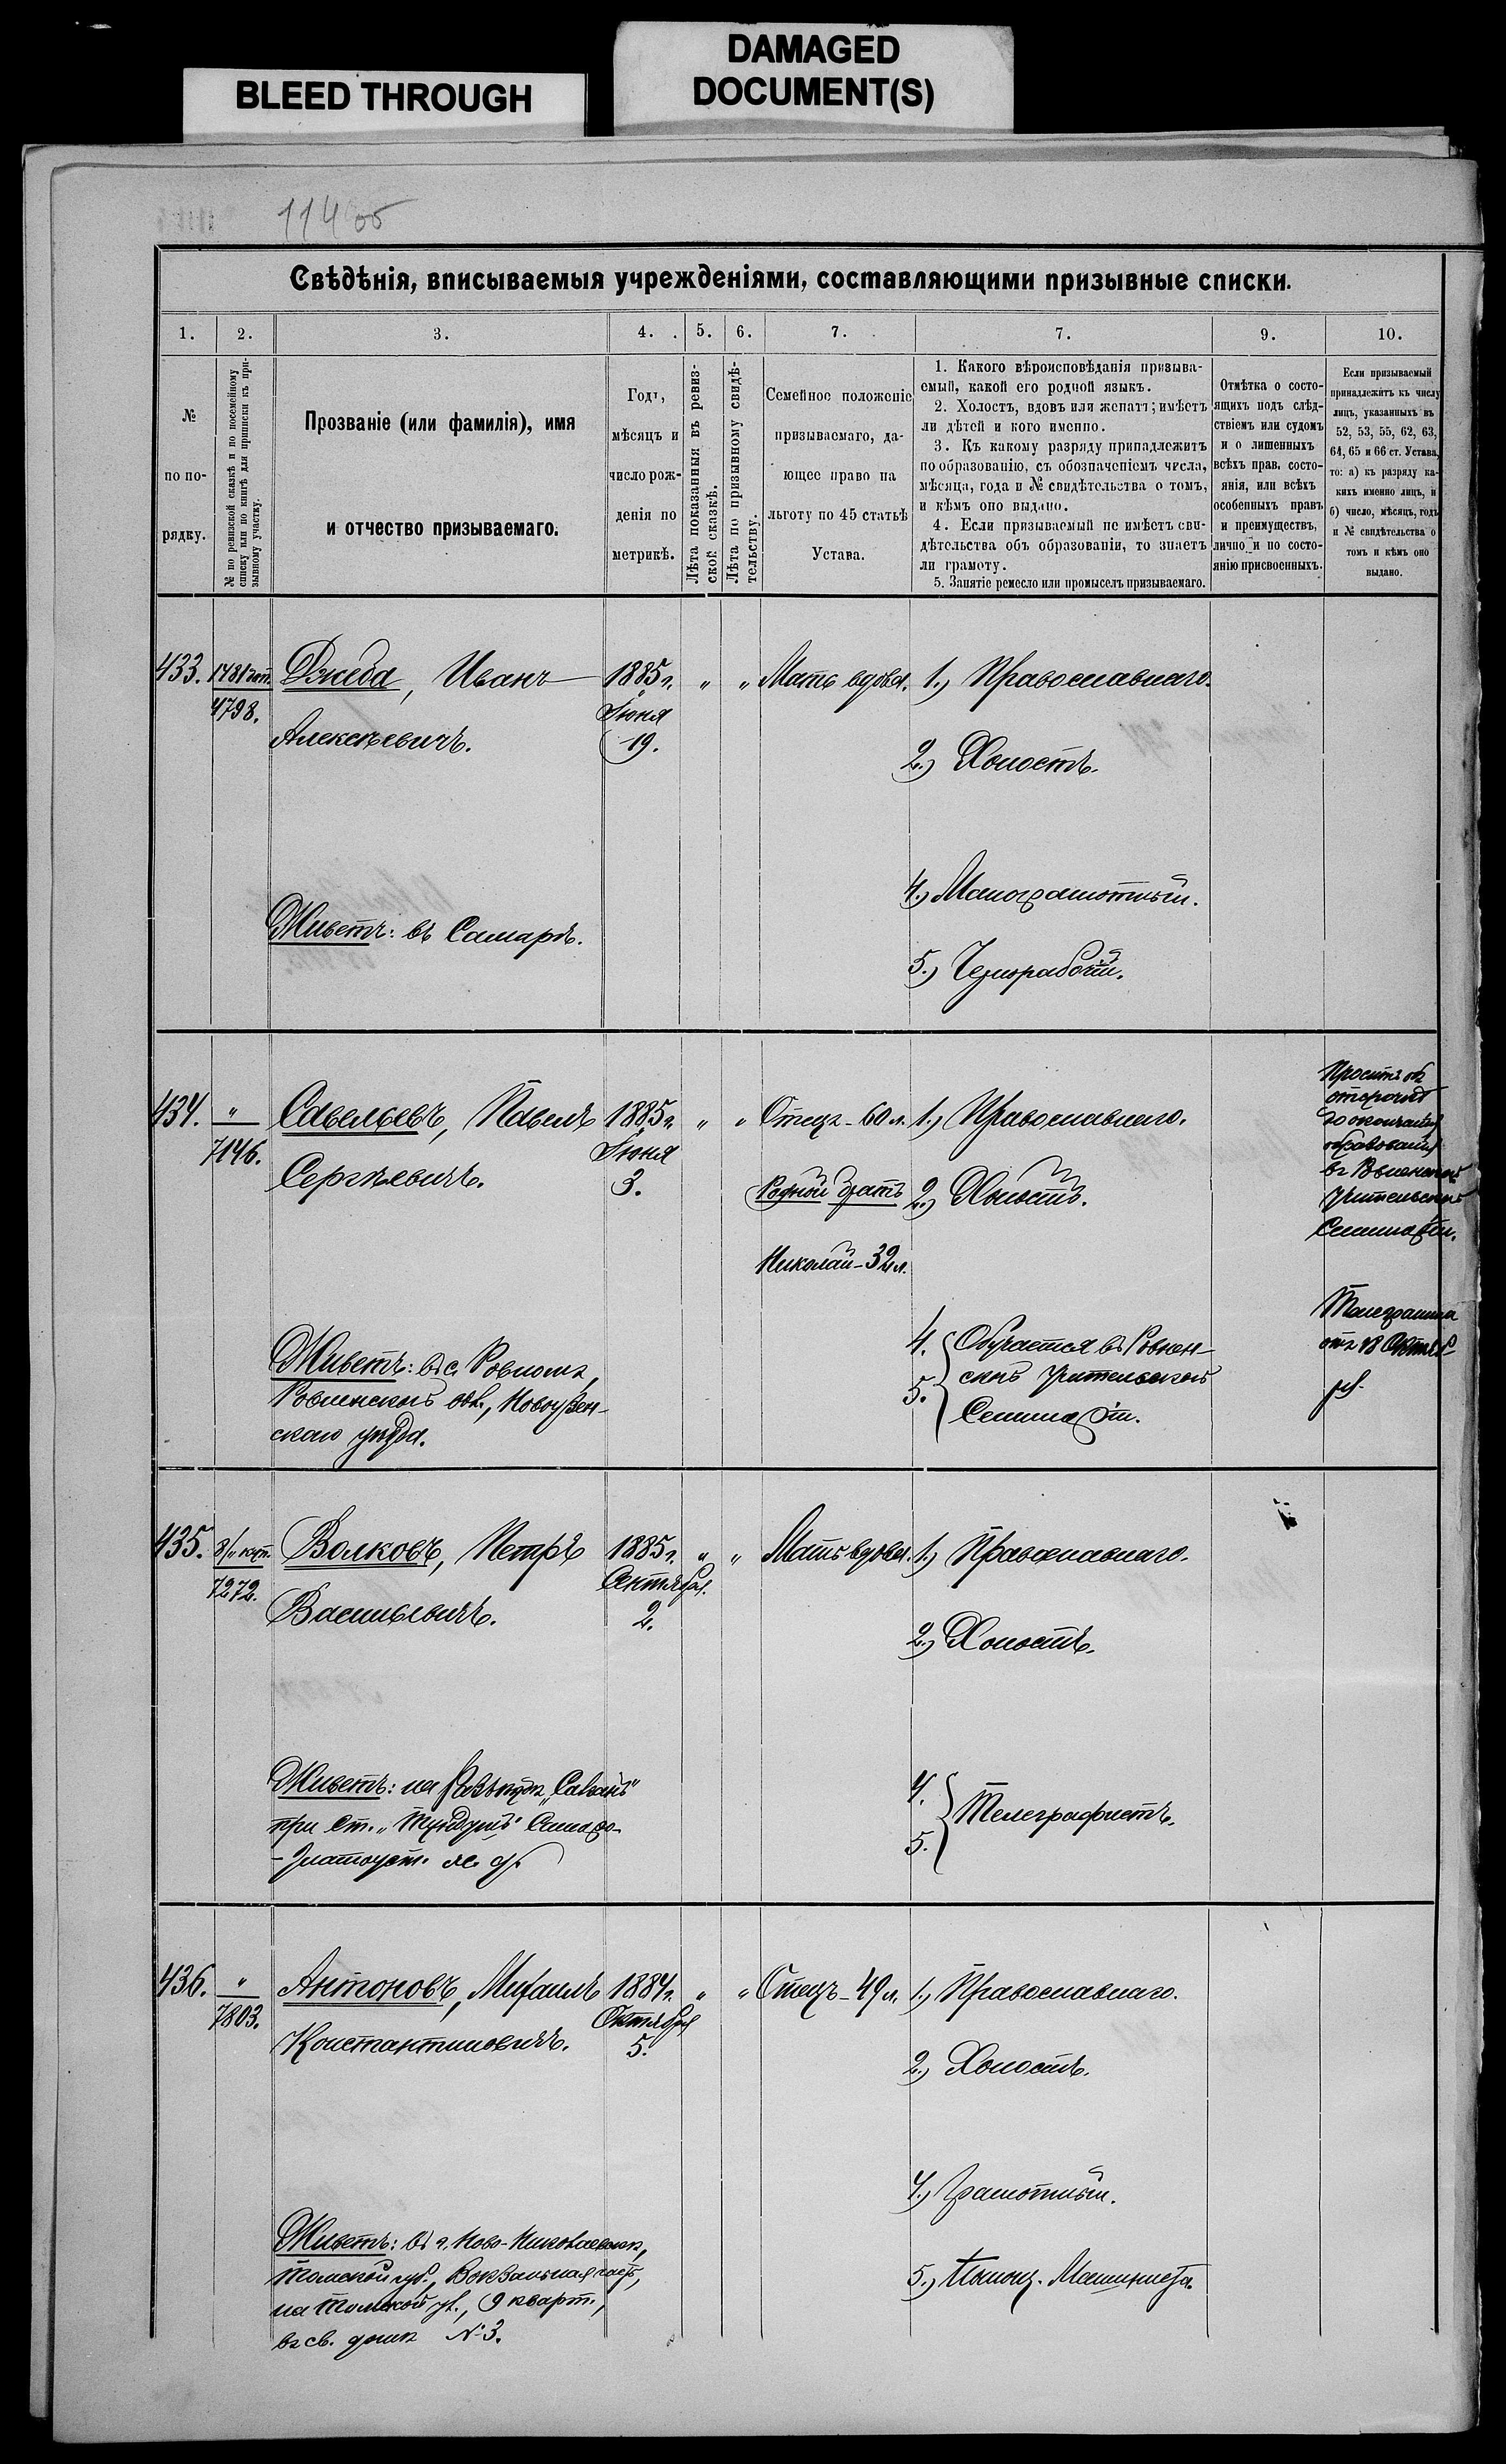 BLEED THROUGH
DAMAGED
DOCUMENT(S)
114 об
Свѣдѣнія, вписываемыя учрежденіями, составляющими призывные списки.
1.
2.
3.
4.
5.
6.
7.
7.
9.
10.
№
по по-
рядку.
№ по ревизской сказкѣ и по посемейному
списку или по книгѣ для приписки къ при-
зывному участку.
Прозваніе (или фамилія), имя
и отчество призываемаго.
Годъ,
мѣсяцъ и
число рож-
денія по
метрикѣ.
Лѣта показанныя въ ревиз-
ской сказкѣ.
Лѣта по призывному свидѣ-
тельству.
Семейное положеніе
призываемаго, да-
ющее право на
льготу по 45 статьѣ
Устава.
1. Какого вѣроисповѣданія призыва-
емый, какой его родной языкъ.
2. Холостъ, вдовъ или женатъ; имѣетъ
ли дѣтей и кого именно.
3. Къ какому разряду принадлежитъ
по образованію, съ обозначеніемъ числа,
мѣсяца, года и № свидѣтельства о томъ,
и кѣмъ оно выдано.
4. Если призываемый не имѣетъ сви-
дѣтельства объ образованіи, то знаетъ
ли грамоту.
5. Занятіе ремесло или промыселъ призываемаго.
Отмѣтка о состо-
ящихъ подъ слѣд-
ствіемъ или судомъ
и о лишенныхъ
всѣхъ прав. состо-
янія, или всѣхъ
особенныхъ правъ
и преимуществъ,
лично и по состо-
янію присвоенныхъ.
Если призываемый
принадлежитъ къ числу
лицъ, указанныхъ въ
52, 53, 55, 62, 63,
64, 65 и 66 ст. Устава,
то: а) къ разряду ка-
кихъ именно лицъ, и
б) число, мѣсяцъ, годъ
и № свидѣтельства о
томъ и кѣмъ оно
выдано.
433.
4798.
Джеба, Иванъ
Алексѣевичъ.
1885 г.
Іюня
19.
" "
Мать вдова.
1.) Православнаго.
2.) Холостъ.
4.) Малограмотный.
5.) Чернорабочій.
Живетъ: въ Самарѣ.
434. "
7146.
Савельевъ, Павелъ
Сергѣевичъ.
1885 г.
Іюня
3.
" "
Отецъ - 60 л.
Родной братъ
Николай - 32 л.
1.) Православнаго.
2.) Холостъ.
4. Обучается въ Ровнен-
5. ской учительской
Семинаріи.
Проситъ объ
отсрочкѣ
до окончанія
образованія
въ Ровненской
учительской
Семинаріи.
Телеграмма
отъ 18 Октяб-
ря.
Живетъ: въ с. Ровномъ,
Ровненской вол., Новоузен-
скаго уѣзда.
435.
7272.
Волковъ, Петръ
Васильевичъ.
1885 г.
Сентября.
2.
" "
Мать вдова.
1.) Православнаго.
2.) Холостъ.
4.
5. Телеграфистъ.
Живетъ: на разъѣздѣ
при ст. Самаро-
-Златоуст. ж. д.
436. "
7803.
Антоновъ, Михаилъ
Константиновичъ.
1884 г.
Октября
5.
" "
Отецъ - 49 л.
1.) Православнаго.
2.) Холостъ.
4.) Грамотный.
5.) Помощ. Машиниста.
Живетъ: въ г. Ново-Николаевскѣ,
Томской губ., Вокзальная часть,
на Томской ул., 9 кварт.,
въ св. домѣ № 3.